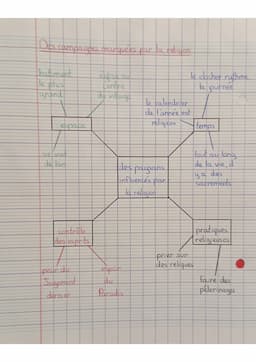 Des campagnes marquées par la religion
bâtiment
le plus
grand
église au
centre
du village
espace
se voit
de loin
le clocher rythme
la journée
le calendrier
de l'année est
religieux
temps
tout au long
de la vie, il
y a des
sacrements
des paysans
influencés par
la religion
contrôle
des esprits
peur du
Jugement
dernier
espoir
du
Paradis
pratiques
religieuses
prier sur
des reliques
faire des
pèlerinages